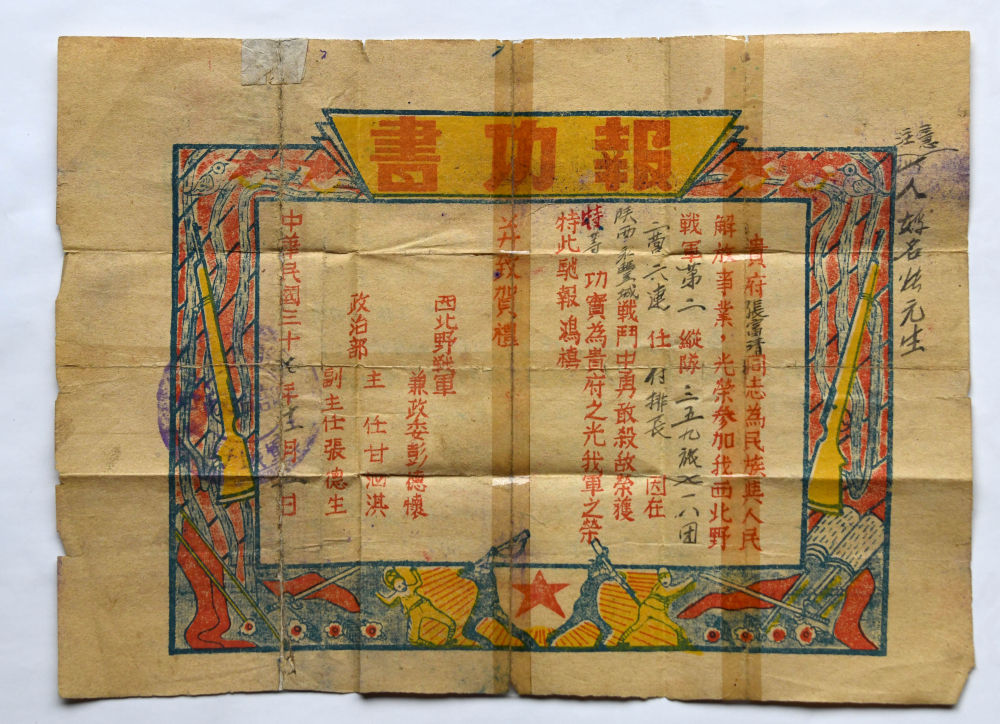 報功書
貴府張富清同志為民族與人民
解放事業，光榮參加我西北野
戰軍第二縱隊三五九旅七一八团
二营六連任付排長因在
陝西永豐城戰鬥中勇敢殺敵榮獲
特等功實為貴府之光我軍之榮
特此馳報鴻禧
并致賀禮
西北野戰軍
兼政委彭德懷
政治部
主任甘泗淇
副主任張德生
中華民國三十七年十二月日
注意
人姓名生